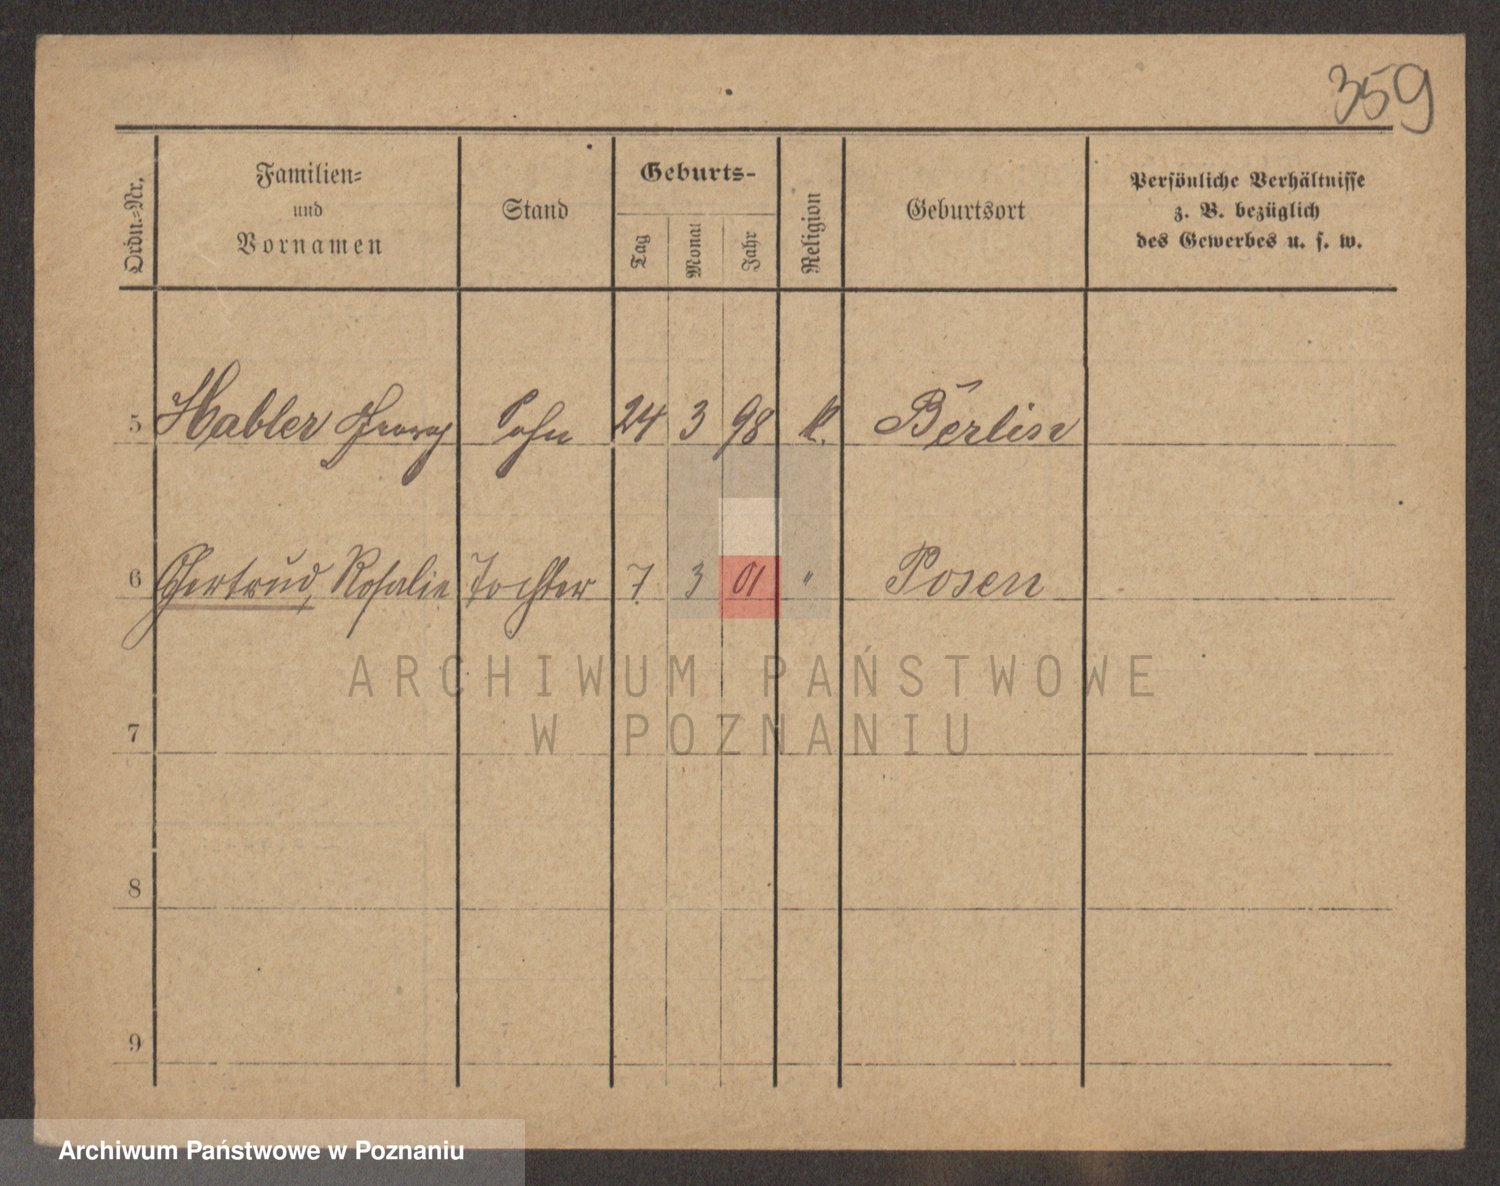 359
Ordn.=Nr.
Familien=
und
Vornamen
Stand
Geburts-
Tag
Monat
Jahr
Religion
Geburtsort
Persönliche Verhältnisse
z. B. bezüglich
des Gewerbes u. s. w.
5 Habler Georg Sohn 24 3 98 K. Berlin
6 Gertrud, Rosalie Tochter 7. 3 01 " Posen
ARCHIWUM PAŃSTWOWE
W POZNANIU
7
8
9
Archiwum Państwowe w Poznaniu